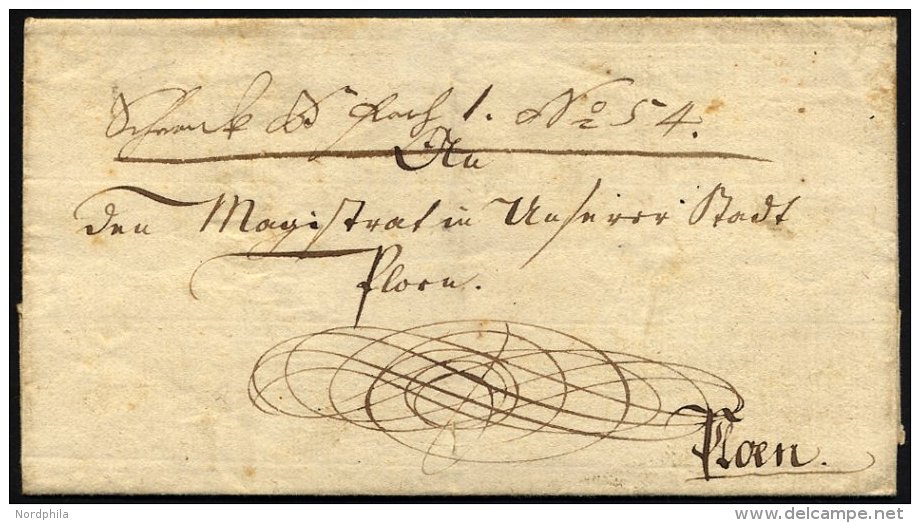 Schrank B Fach 1. No 54.
An
den Magistrat in Unserer Stadt
Ploen.
Ploen.
Nordphila
www.delcampe.net